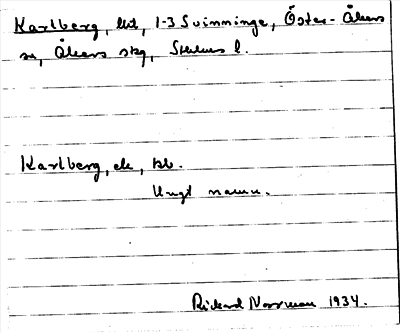 Karlberg, lht, 1-3 Svinninge, Öster-Åkers
sn, Åkers skg, Sthlms l.
Karlberg, ek, kb.
Ungt namn.
Rickard Norrman 1934.